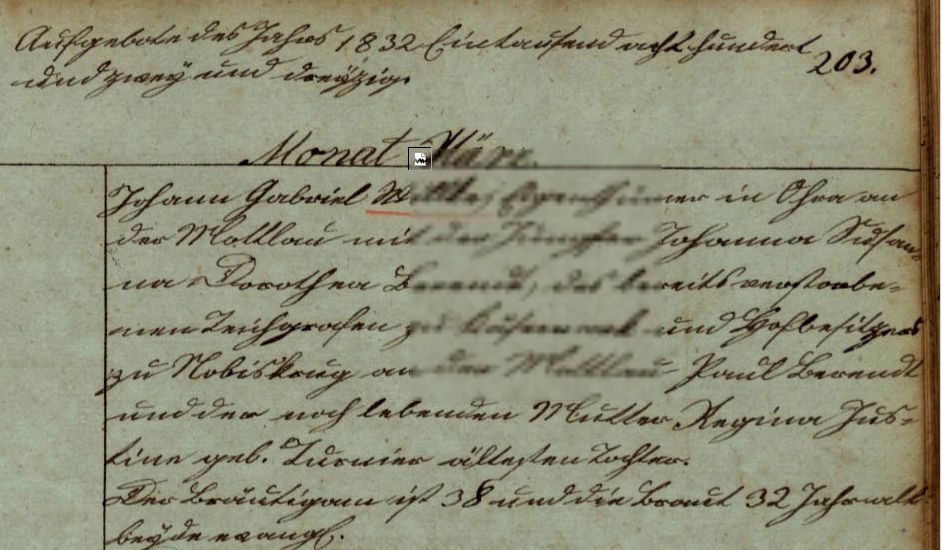 Aufgebote des Jahrs 1832 Eintausend acht hundert
und zwey und dreyzig
203.
Monat März.
Johann Gabriel in Ohra an
der Mottlau mit der Jungfer Johanna Susan-
na Dorothea Berendt, des bereits verstorbe-
nen Teichgrafen zu und Hofbesitzers
zu Nobiskrug an der Mottlau Paul Berendt
und der noch lebenden Mutter Regina Jus-
tine geb. Turnier ältesten Tochter.
Der Bräutigam ist 38 und die Braut 32 Jahr alt
beyde evangl.